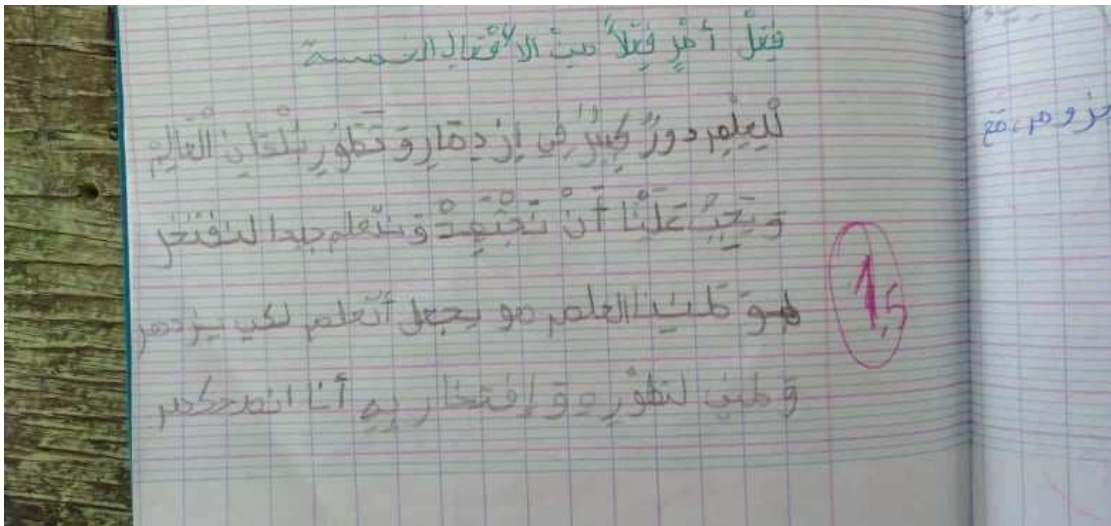 فِعْلُ أَمْرٍ فِعْلاً مِنَ الأَفْعَالِ الخمسة
لِلْعِلْمِ دورٌ كَبِيرٌ فِي اِزْدِهَارِ وَ تَطَوُّرِ بُلْدَانِ الْعَالِمِ
وَ يَجِبُ عَلَيْنَا أَنْ نَجْتَهِدْ وَ نتعلم جيدا لنفتخر
بوطننا العلم هو يجعل أتعلم لكي يزدهر
وطني لتطوره و إفتخار به أنا انصحكم
1,5